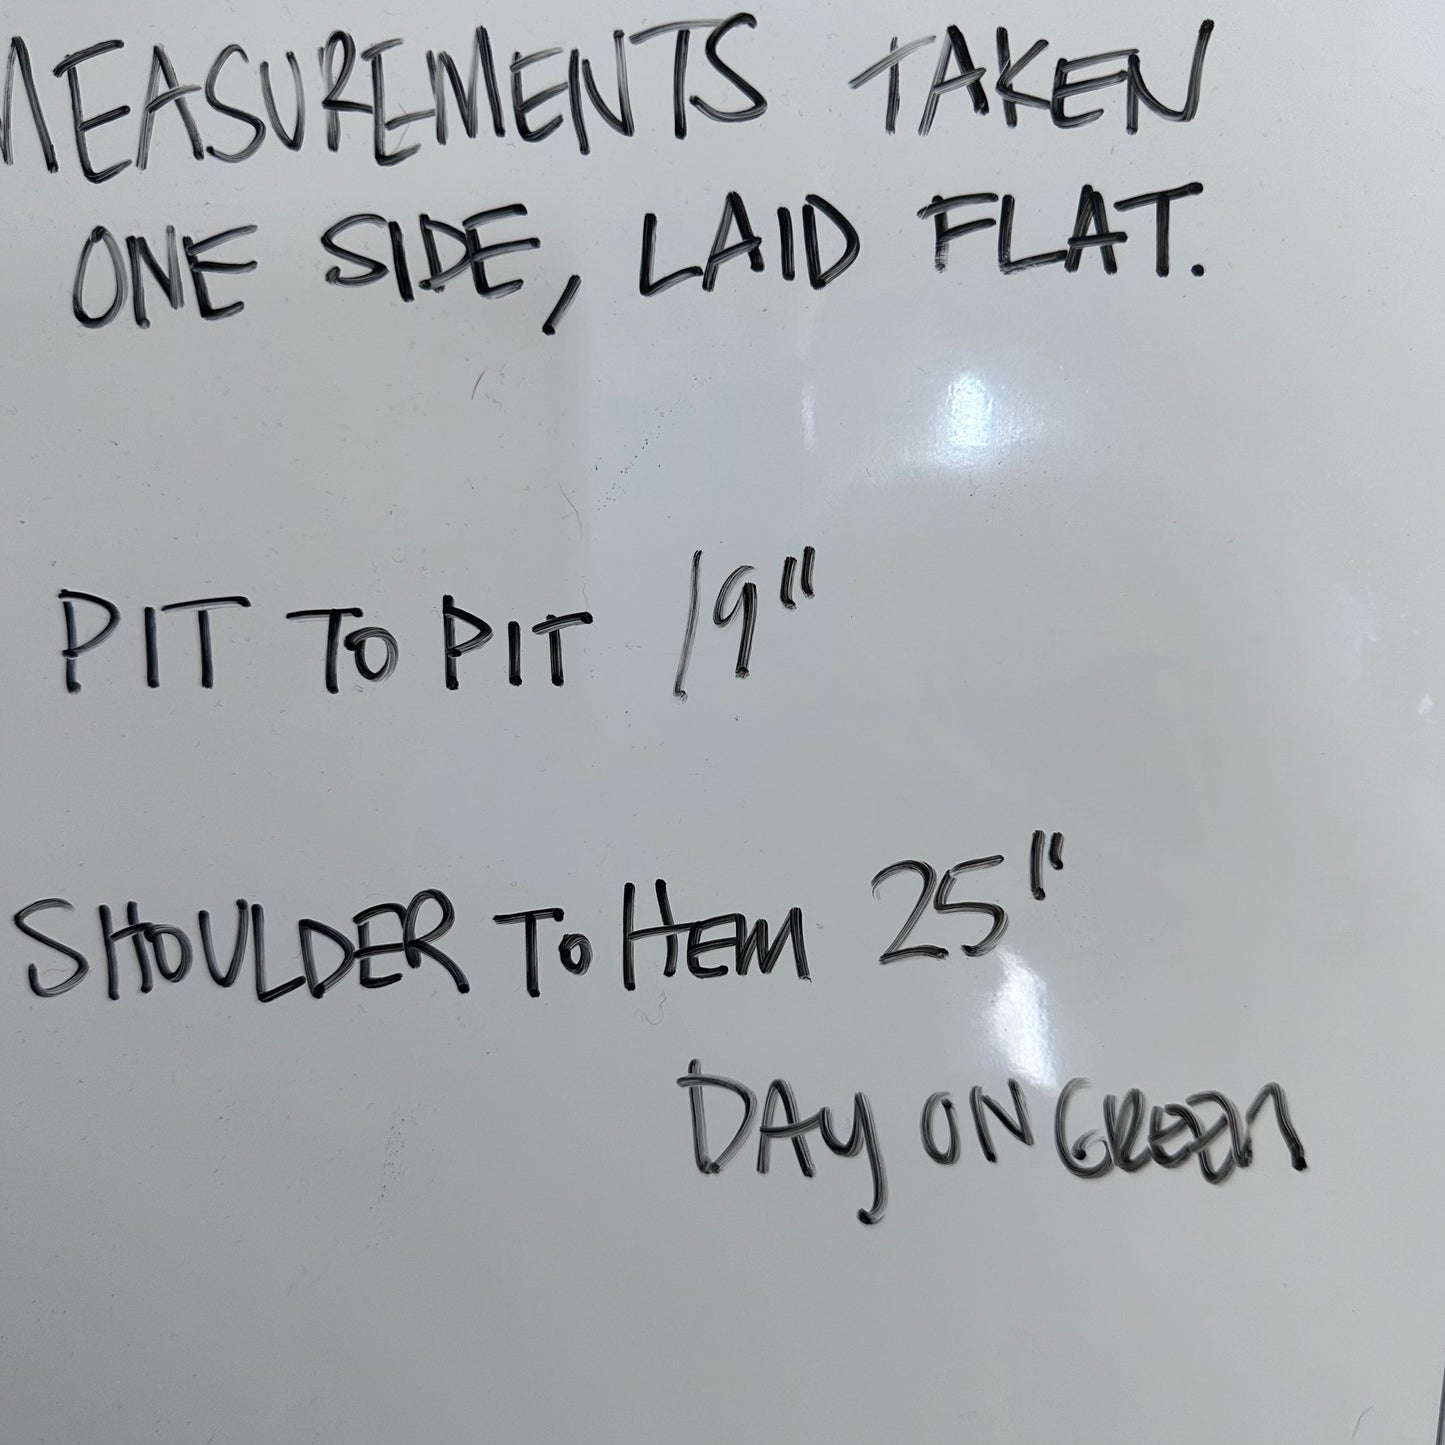 MEASUREMENTS TAKEN
ONE SIDE, LAID FLAT.
PIT TO PIT 19"
SHOULDER TO HEM 25"
DAY ON GREEN